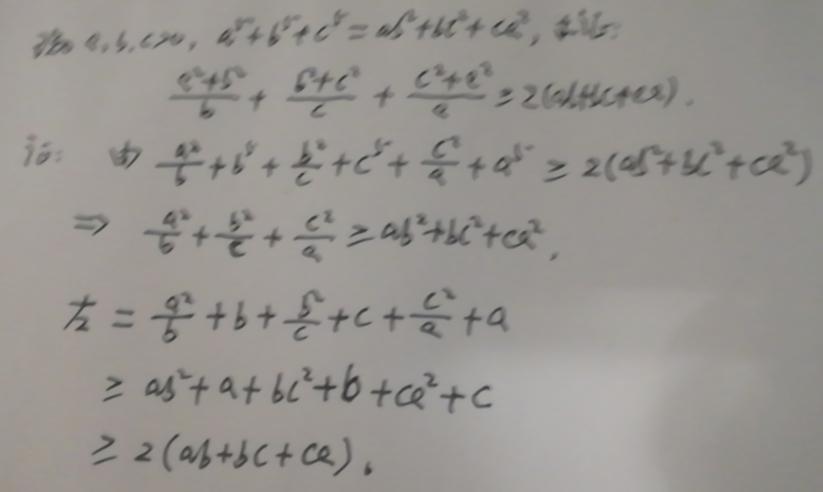 已知 a,b,c>0, a⁵+b⁵+c⁵=ab²+bc²+ca², 求证:
(a²+b²)/b + (b²+c²)/c + (c²+a²)/a ≥ 2(ab+bc+ca).
证: 由 a²/b + b⁵ + b²/c + c⁵ + c²/a + a⁵ ≥ 2(ab²+bc²+ca²)
⇒ a²/b + b²/c + c²/a ≥ ab²+bc²+ca²,
左 = a²/b + b + b²/c + c + c²/a + a
≥ ab²+a+bc²+b+ca²+c
≥ 2(ab+bc+ca).